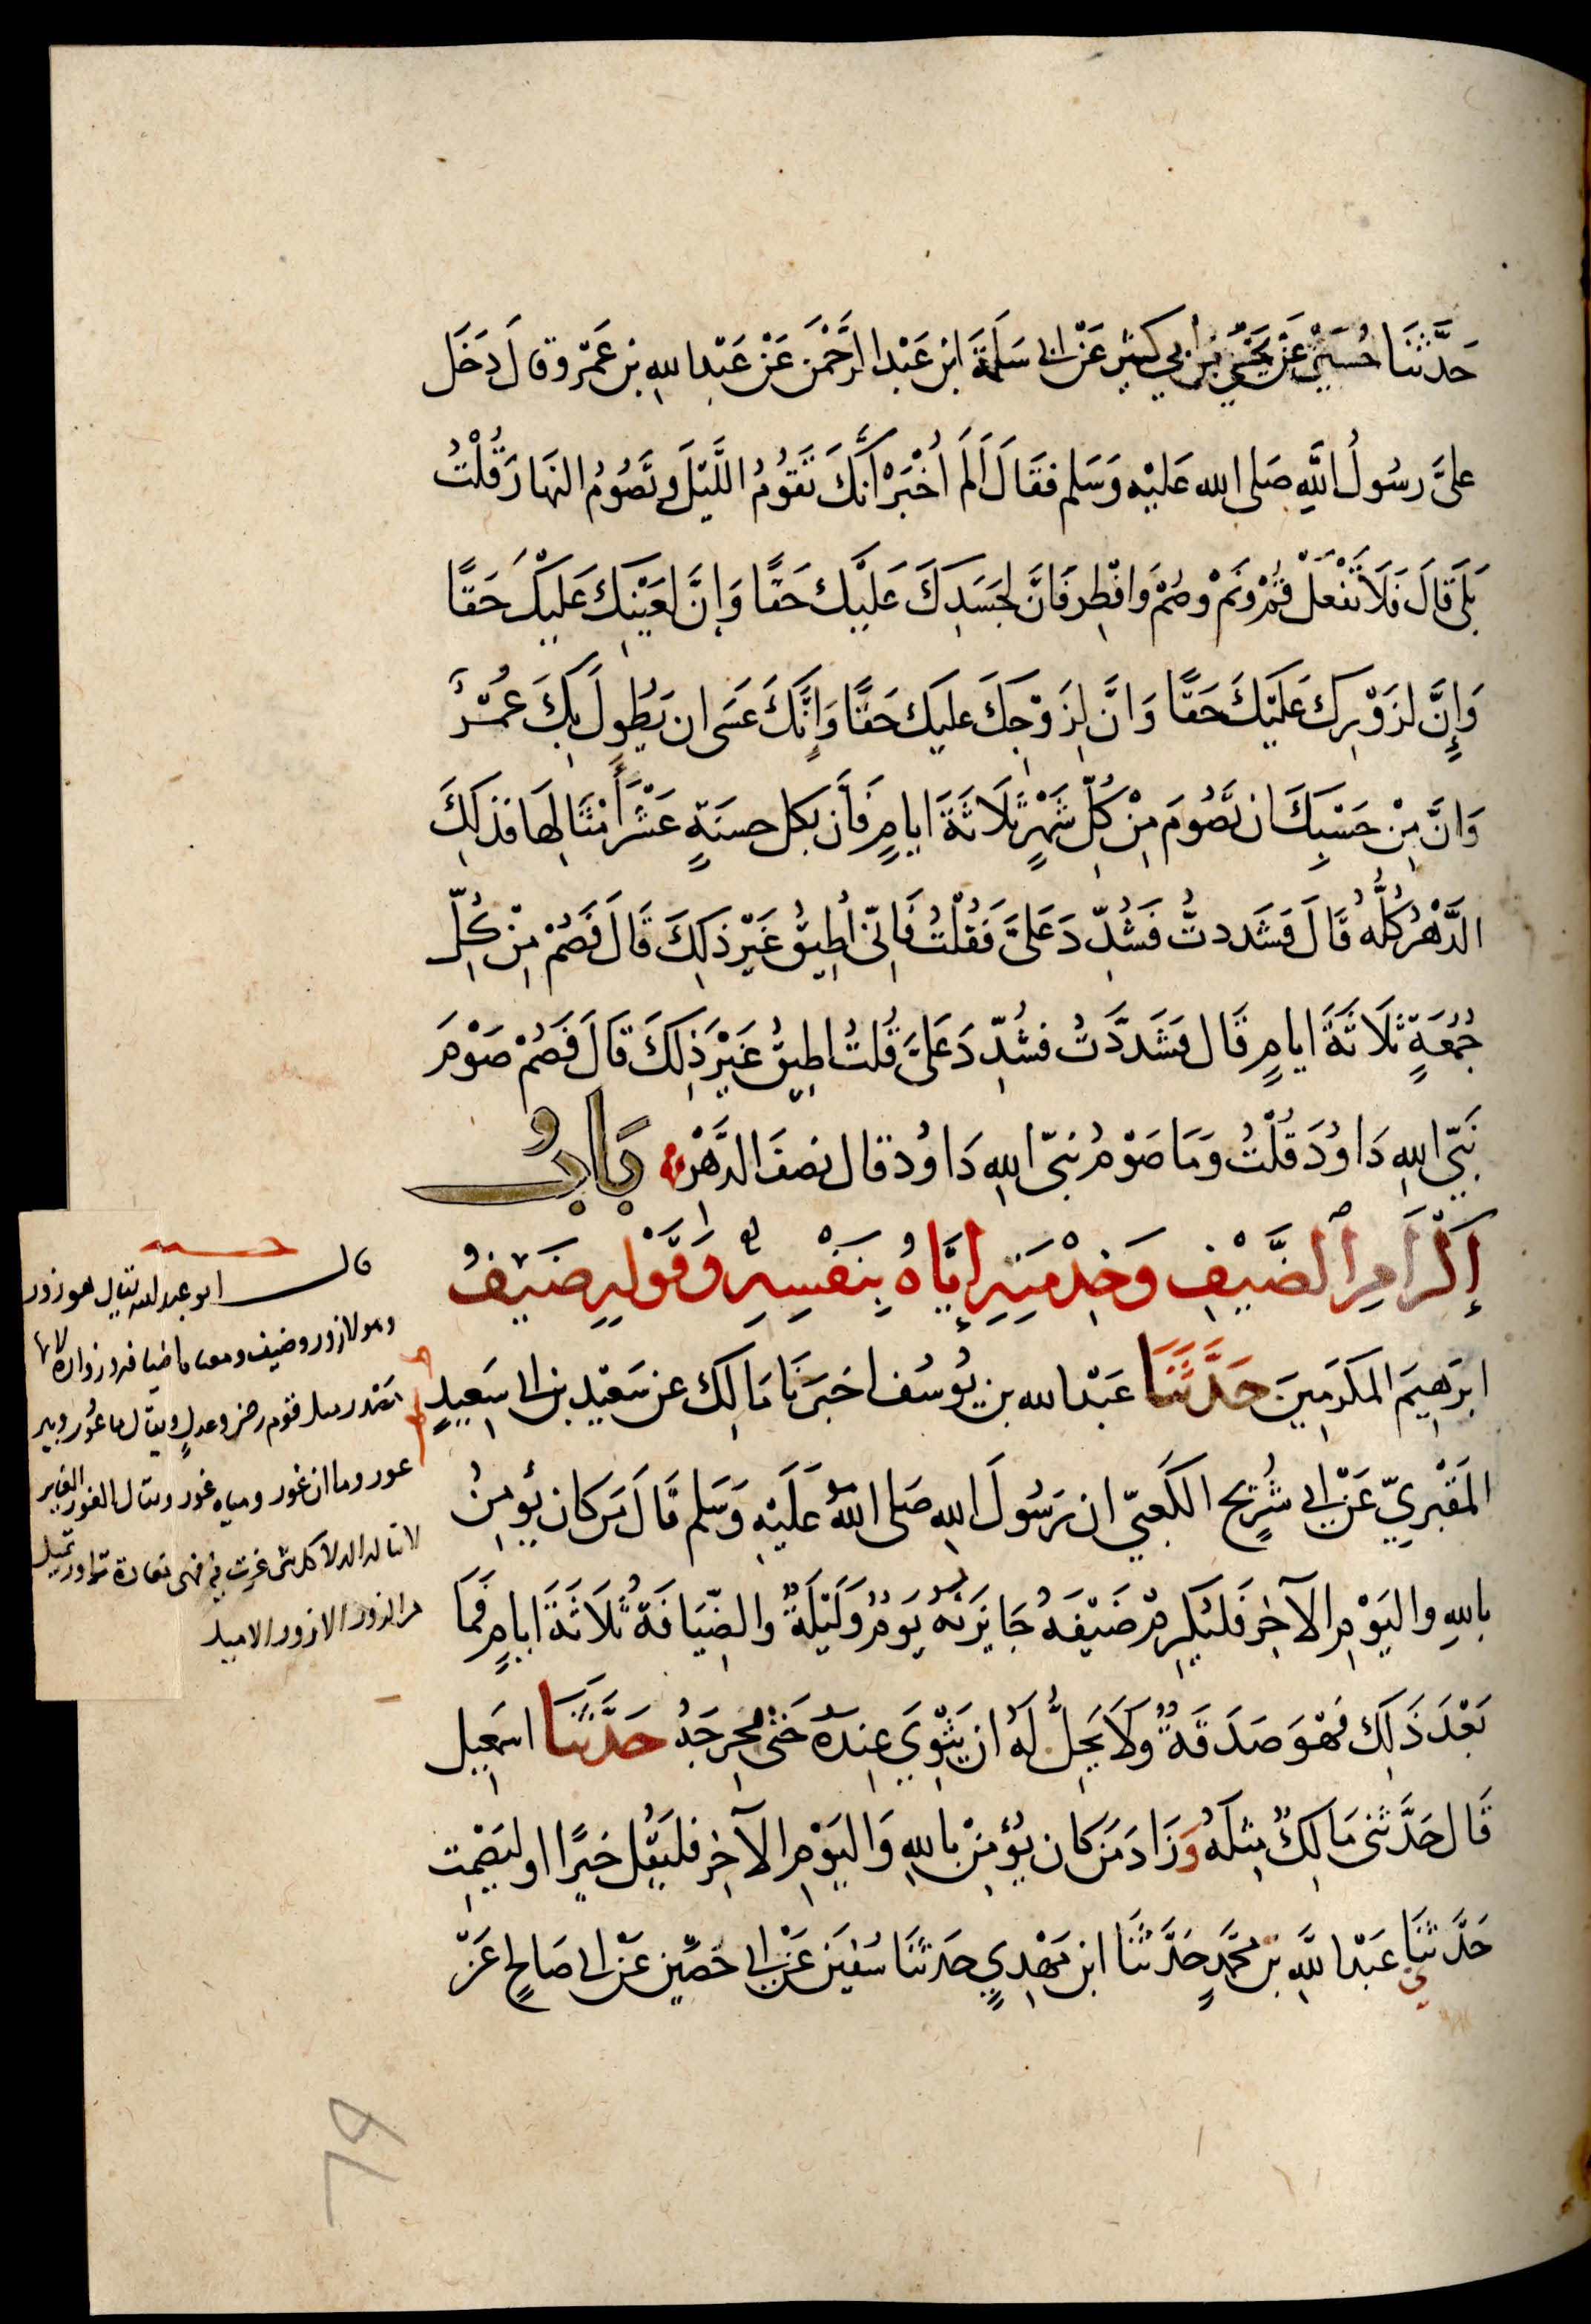 حَدَّثَنَا حُسَيْنٌ عَنْ يَحْيَى بْنِ أبي كثير عَنْ ابى سَلَمَةَ ابْنِ عَبْدِ الرَّحْمٰنِ عَنْ عَبْدِ اللهِ بنِ عَمْرٍو قالَ دَخَلَ
عَلىَّ رسُولُ اللَّهِ صَلى الله عَلَيْهِ وَسَلم فقَالَ أَلَمْ أُخْبَرْ أَنَّكَ تَقُومُ اللَّيْلَ وَتَصُومُ النهَارَ قُلْتُ
بَلَى قَالَ فَلَا تَفْعَلْ قُمْ وَنَمْ وصُمْ وَافْطِرْ فَانَّ لِجَسَدِكَ عَلَيْكَ حَقًّا وَإِنَّ لِعَيْنِكَ عَلَيْكَ حَقًّا
وَإِنَّ لِزَوْرِكَ عَلَيْكَ حَقًّا وَانَّ لِزَوْجِكَ عليكَ حَقًّا وَإِنَّكَ عَسَى ان يَطُولَ بِكَ عُمُرٌ
وَانَّ مِنْ حَسْبِكَ ان تَصُومَ مِنْ كُلِّ شَهْرٍ ثَلَاثَةَ ايامٍ فَأن بكل حسنَةٍ عَشْرَ أَمْثَالِهَا فذلِكَ
الدَّهْرُ كُلُّهُ قَالَ فَشَددتُّ فَشُدِّدَ عَلَىَّ فَقُلْتُ فَإنّى أُطِيقُ غَيْرَ ذلِكَ قَالَ فَصُمْ مِنْ كُلِّ
جُمُعَةٍ ثَلَاثَةَ ايامٍ قَال فَشَدَّدتُ فشُدِّدَ عَلَىَّ قُلتُ اطِيقُ غَيْرَ ذٰلِكَ قَالَ فَصُمْ صَوْمَ
نَبِيِّ اللهِ دَاوُدَ قُلْتُ وَمَا صَوْمُ نَبيِّ اللهِ دَاوُدَ قال نصفَ الدَّهْرِ بَابُ
إِكْرَامِ الضَّيْفِ وَخِدْمَتِهِ إِيَّاهُ بِنَفْسِهِ وَقَوْلِهِ ضَيْفُ
ابرٰهِيمَ المكرَمِينَ حَدَّثَنَا عَبْدُ الله بن يُوسُفَ اخبَرَنَا مَالِكٌ عن سَعِيْدِ بن ابى سَعِيدٍ
المَقْبُرِيِّ عَنْ ابى شُرَيْحٍ الكَعبيِّ ان رَسُولَ اللهِ صَلى اللهُ عَلَيْهِ وَسَلم قَالَ مَن كان يُؤمِنُ
باللهِ واليَوْمِ الآخِرِ فَليُكرِمْ ضَيْفَهُ جَايزَتُهُ يَوْمٌ وَلَيْلَةٌ والضِّيَافَةُ ثَلَاثَةَ ايامٍ فَمَا
بَعْدَ ذَلِكَ فَهْوَ صَدَقَةٌ وَلَا يَحِلُّ لَهُ ان يَثْوِيَ عِندَهُ حَتَّى يُحْرِجَهُ حَدَّثَنَا اسمٰعِيل
قَال حَدَّثَنى مَالِكٌ مِثلَهُ وَزَادَ مَنْ كان يُؤْمِنُ باللهِ وَاليَوْمِ الآخِرِ فليَقُل خَيرًا او ليَصْمت
حَدَّثَنَا عَبْدُ اللَّهِ بْنُ محمَّدٍ حَدَّثَنَا ابنُ مَهْدِيٍ حَدثَنَا سُفيٰنُ عَنْ ابى حَصِينٍ عَنْ ابى صَالحٍ عَنْ
قال ابو عبد الله يقال هو زور
وهولا زور وضيف ومعناه اضيافه وزواره لانها
مصدر مثل قوم رضى وعدل ويقال ماء غور وبير
غور وماءان غور ومياه غور ويقال الغور الغاير
لا تناله الدلاء كل شى غرت فيه فهى مغارة تزاور تميل
من الزور الازور الاميل
79